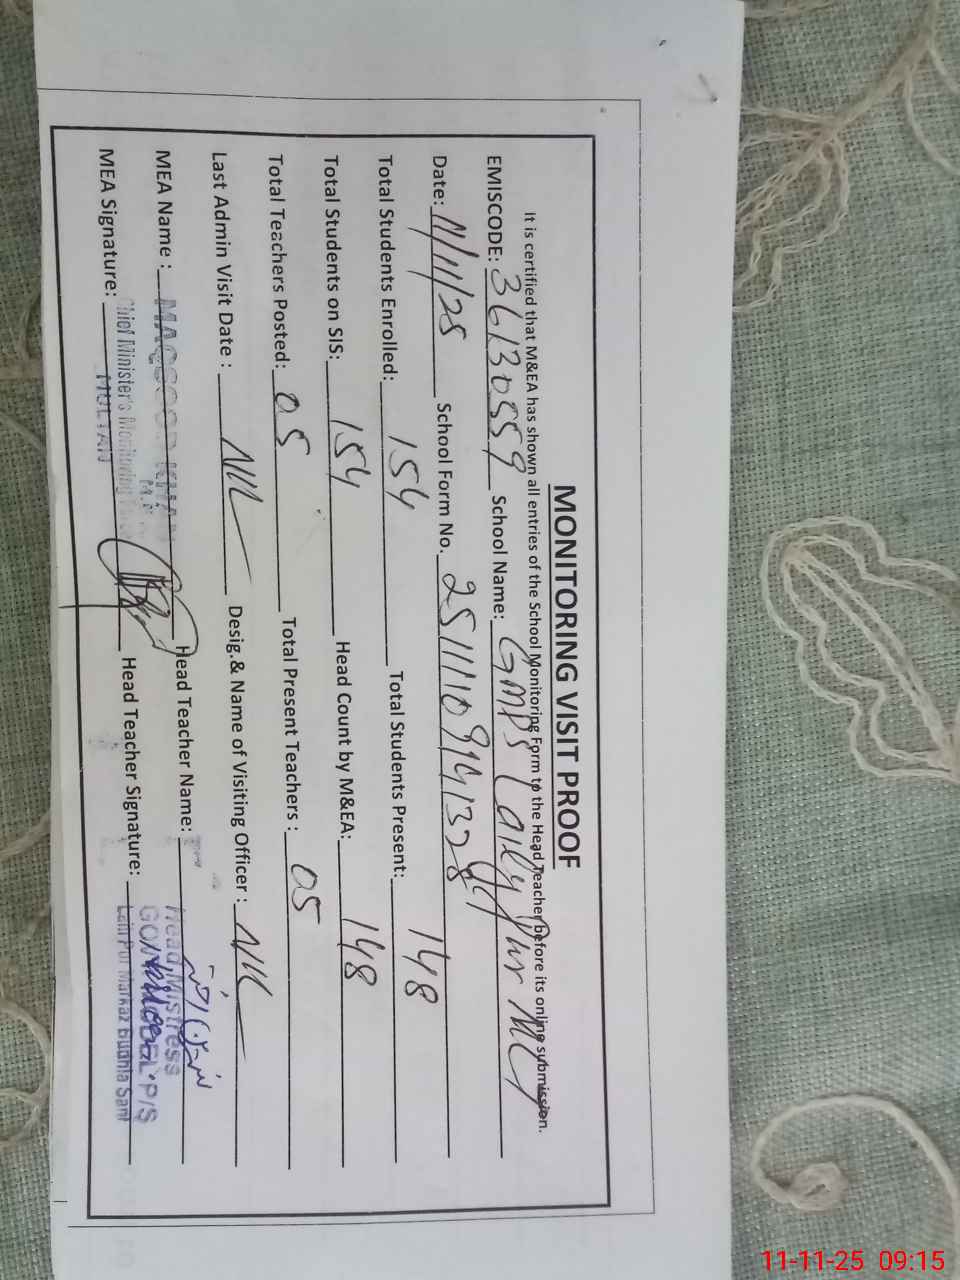 MONITORING VISIT PROOF
It is certified that M&EA has shown all entries of the School Monitoring Form to the Head Teacher before its online submission.
EMISCODE: 36130559 School Name: GMPS Lailly Pur
Date: 11/11/25 School Form No.
Total Students Enrolled: 154 Total Students Present: 148
Total Students on SIS: 154 Head Count by M&EA: 148
Total Teachers Posted: 05 Total Present Teachers : 05
Last Admin Visit Date : Nil Desig.& Name of Visiting Officer : Nil
MEA Name : MAQSOOD KHAN Head Teacher Name:
Chief Minister's Monitoring Force Head Mistress
MEA Signature: MULTAN Head Teacher Signature:
MODEL P/S
Markaz Budhla Sant
11-11-25 09:15